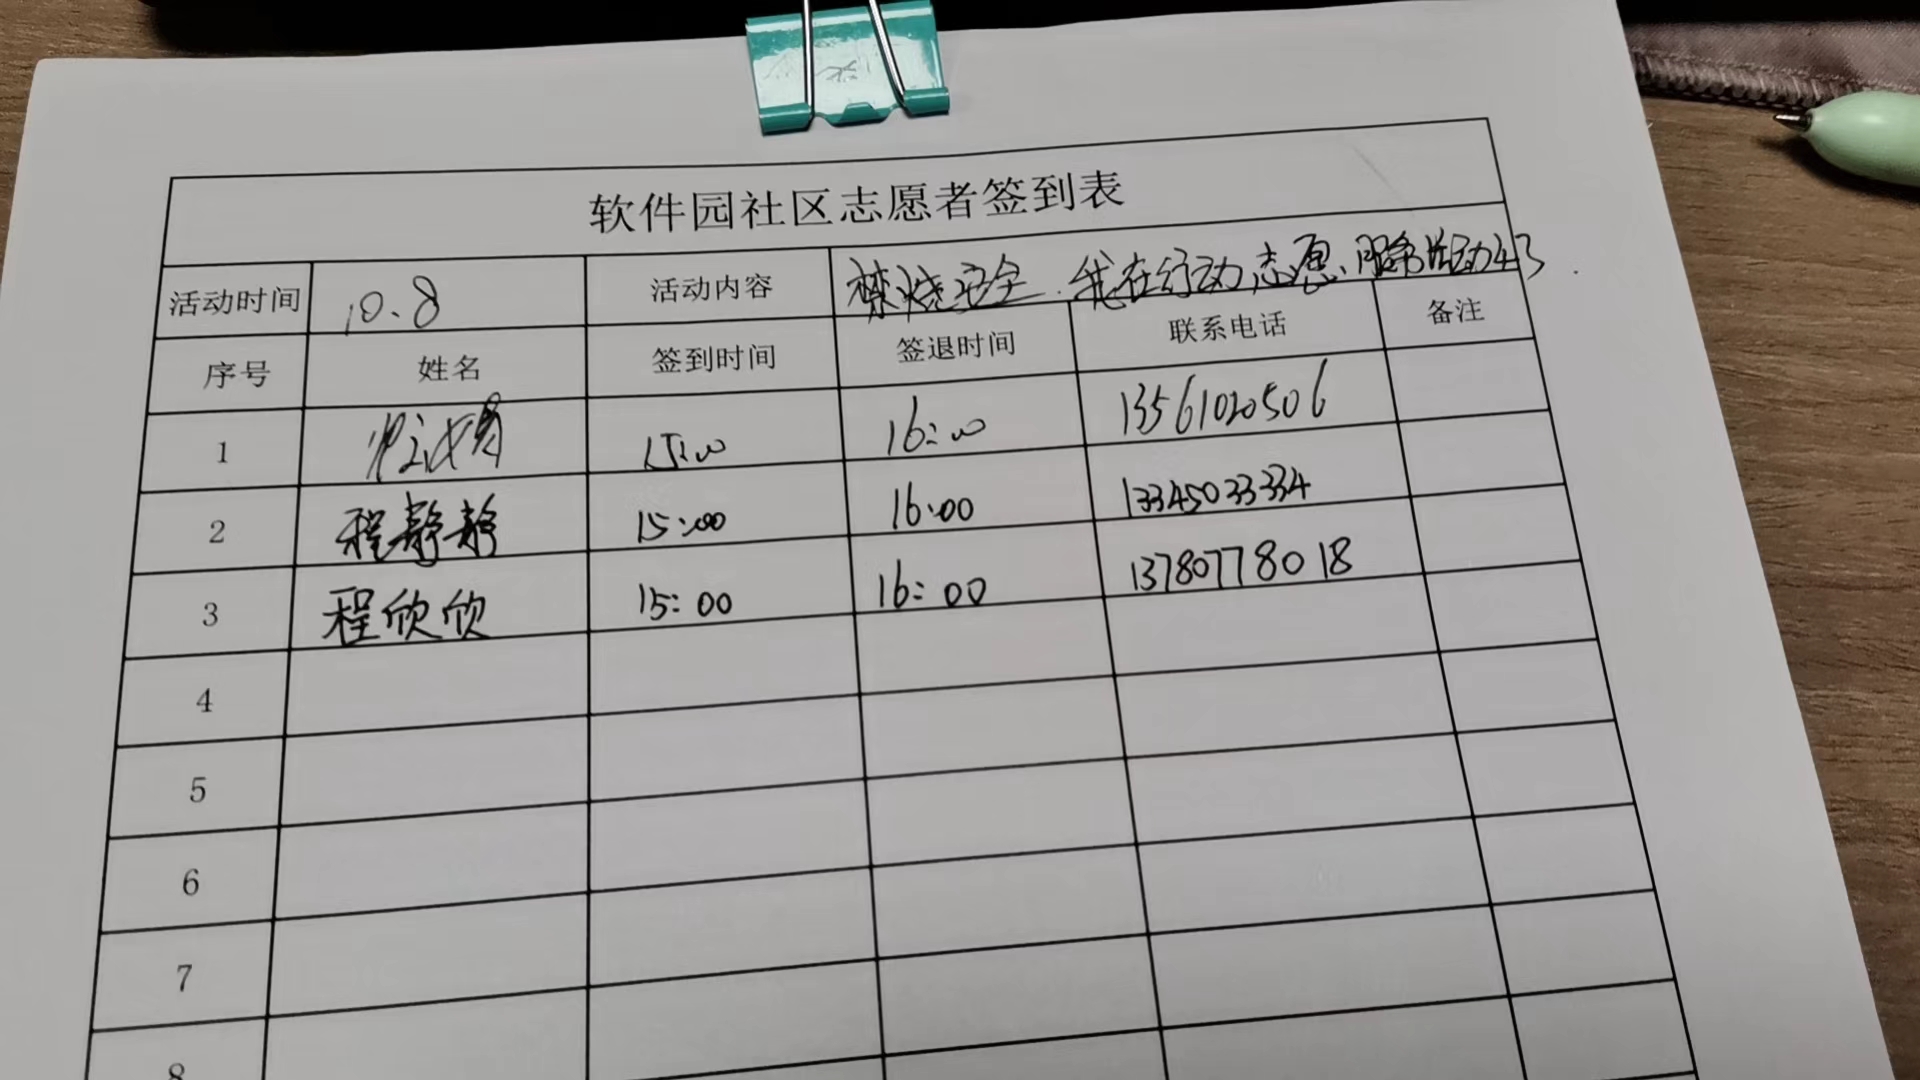 软件园社区志愿者签到表
活动时间 10.8 活动内容 禁烧安全.我在行动志愿服务活动
序号 姓名 签到时间 签退时间 联系电话 备注
1 15:00 16:00 13561020506
2 程静静 15:00 16:00 13345033334
3 程欣欣 15:00 16:00 13780778018
4
5
6
7
8